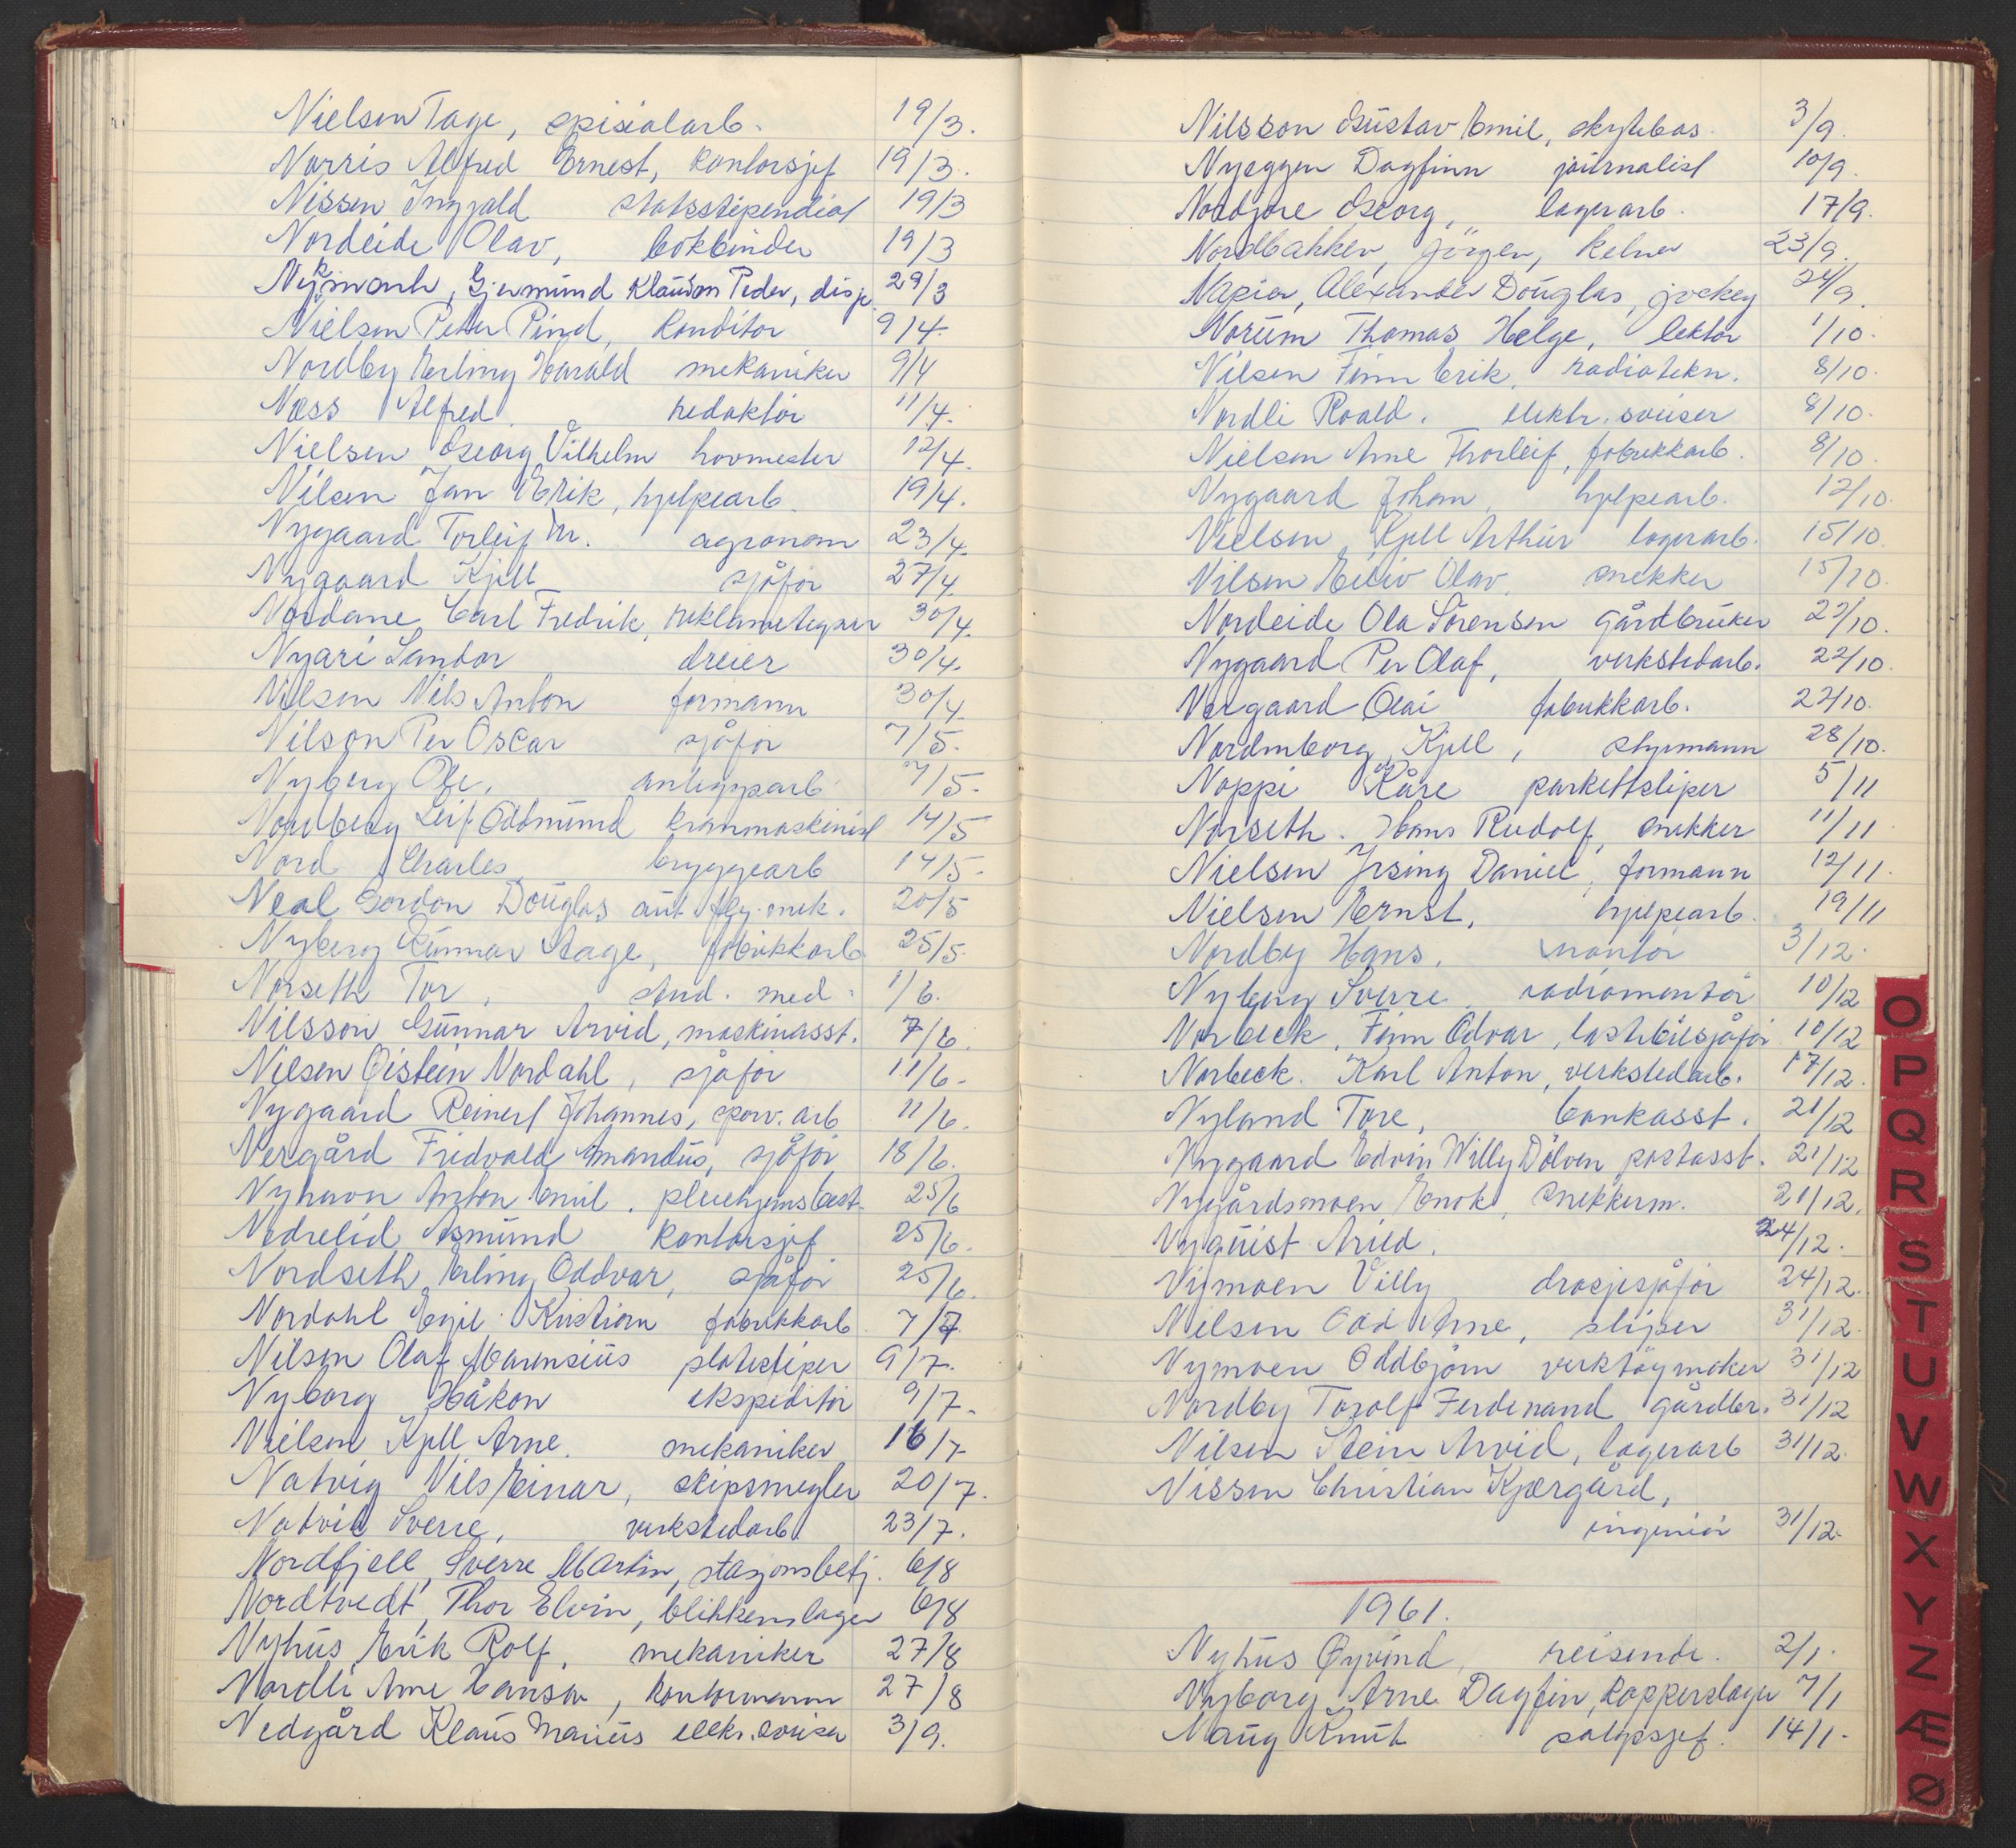 Nielsen Tage, spisialarb. 19/3.
Norris Alfred Ernest, kontorsjef 19/3.
Nissen Ingjald statsstipendiat 19/3
Nordeide Olav, bokbinder 19/3
Nymark, Gjermund Klausen Peder, disp. 29/3
Nielsen Peter Pind, konditor 9/4.
Nordby Erling Harald mekaniker 9/4
Næss Alfred redaktör 11/4.
Nielsen Georg Vilhelm hovmester 12/4.
Nilsen Jan Erik, hjelpearb. 19/4.
Nygaard Torleif M. agronom 23/4.
Nygaard Kjell sjåför 27/4.
Nordane Carl Fredrik, reklametegner 30/4.
Nyari Sandor dreier 30/4.
Nilsen Nils Anton formann 30/4.
Nilson Per Oscar sjåför 7/5.
Nyberg Ole, anleggsarb. 7/5.
Nordberg Leif Oddmund kranmaskinist 14/5
Nord Charles, bryggearb 14/5.
Neal Gordon Douglas aut. fly.mek. 20/5
Nyberg Gunnar Aage, fabrikkarb. 25/5.
Norseth Tor, stud. med. 1/6.
Nilsson Gunnar Arvid, maskinasst. 7/6.
Nilsen Øistein Nordahl, sjåför 11/6.
Nygaard Reinert Johannes, sporv. arb 11/6.
Nergård Fridvald Amandus, sjåför 18/6.
Nyhavn Anton Emil, pleiehjemsbest. 25/6
Nedrelid Asmund kontorsjef 25/6.
Nordseth Erling Oddvar, sjåför 25/6.
Nordahl Egil Kristian fabrikkarb 7/7.
Nilsen Olaf Marensius plateslager 9/7.
Nyborg Håkon ekspeditör 9/7.
Nielsen Kjell Arne. mekaniker 16/7
Natvig Nils Einar, skipsmegler 20/7.
Natvik Sverre, verkstedarb. 23/7.
Nordfjell, Sverre Martin, stasjonsbetj. 6/8
Nordtvedt, Thor Elvin, blikkenslager 6/8
Nyhus Erik Rolf, mekaniker 27/8
Nordli Arne Hansen, kontormann 27/8
Nedgård Klaus Marius elekr. sveiser 3/9.
Nilsson Gustav Emil, skytebas. 3/9.
Nyseggen Dagfinn journalist 10/9.
Nordgore Georg, lagerarb. 17/9.
Nordbakken, Jörgen, kelner 23/9.
Napier, Alexander Douglas, jockey 24/9.
Norum Thomas Helge, lektor 1/10.
Nilsen Finn Erik, radiotekn. 8/10.
Nordli Roald. elektr. sveiser 8/10.
Nielsen Arne Thorleif, fabrikkarb. 8/10.
Nygaard Johan, hjelpearb. 12/10.
Nielsen, Kjell Arthur lagerarb. 15/10.
Nilsen Eiliv Olav, snekker 15/10.
Nordeide Ola Sörensen gårdbruker 22/10.
Nygaard Per Olaf, verkstedarb. 22/10.
Norgaard Olai fabrikkarb. 22/10.
Nordnborg Kjell, styrmann 28/10.
Noppi Kåre parkettsliper 5/11
Norseth. Hans Rudolf, snekker 11/11
Nielsen Irsing Daniel, formann 12/11.
Nielsen Ernst, hjelpearb. 19/11
Nordby Hans, montör 3/12.
Nyberg Sverre, radiomontör 10/12
Norbeck, Finn Odvar, lastebilsjåför 10/12
Norbeck. Karl Anton, verkstedarb. 17/12.
Nyland Tore, bankasst. 21/12
Nygaard Edvin Willy Dölven postasst. 21/12
Nygårdsmoen Enok, snekkerm. 21/12.
Nyquist Arild. 24/12.
Nymoen Villy drosjesjåför 24/12.
Nilsen Odd Arne, sliper 31/12.
Nymoen Oddbjörn verktöymaker 31/12
Nordby Torolf Ferdinand gårdbr. 31/12
Nilsen Stein Arvid, lagerarb 31/12.
Nissen Christian Kjærgård,
ingeniör 31/12.
1961.
Nyhus Øyvind, reisende. 2/1.
Nyborg Arne Dagfin, kopperslager 7/1
Naug Knut salgssjef. 14/1.
O
P
Q
R
S
T
U
V
W
X
Y
Z
Æ
Ø